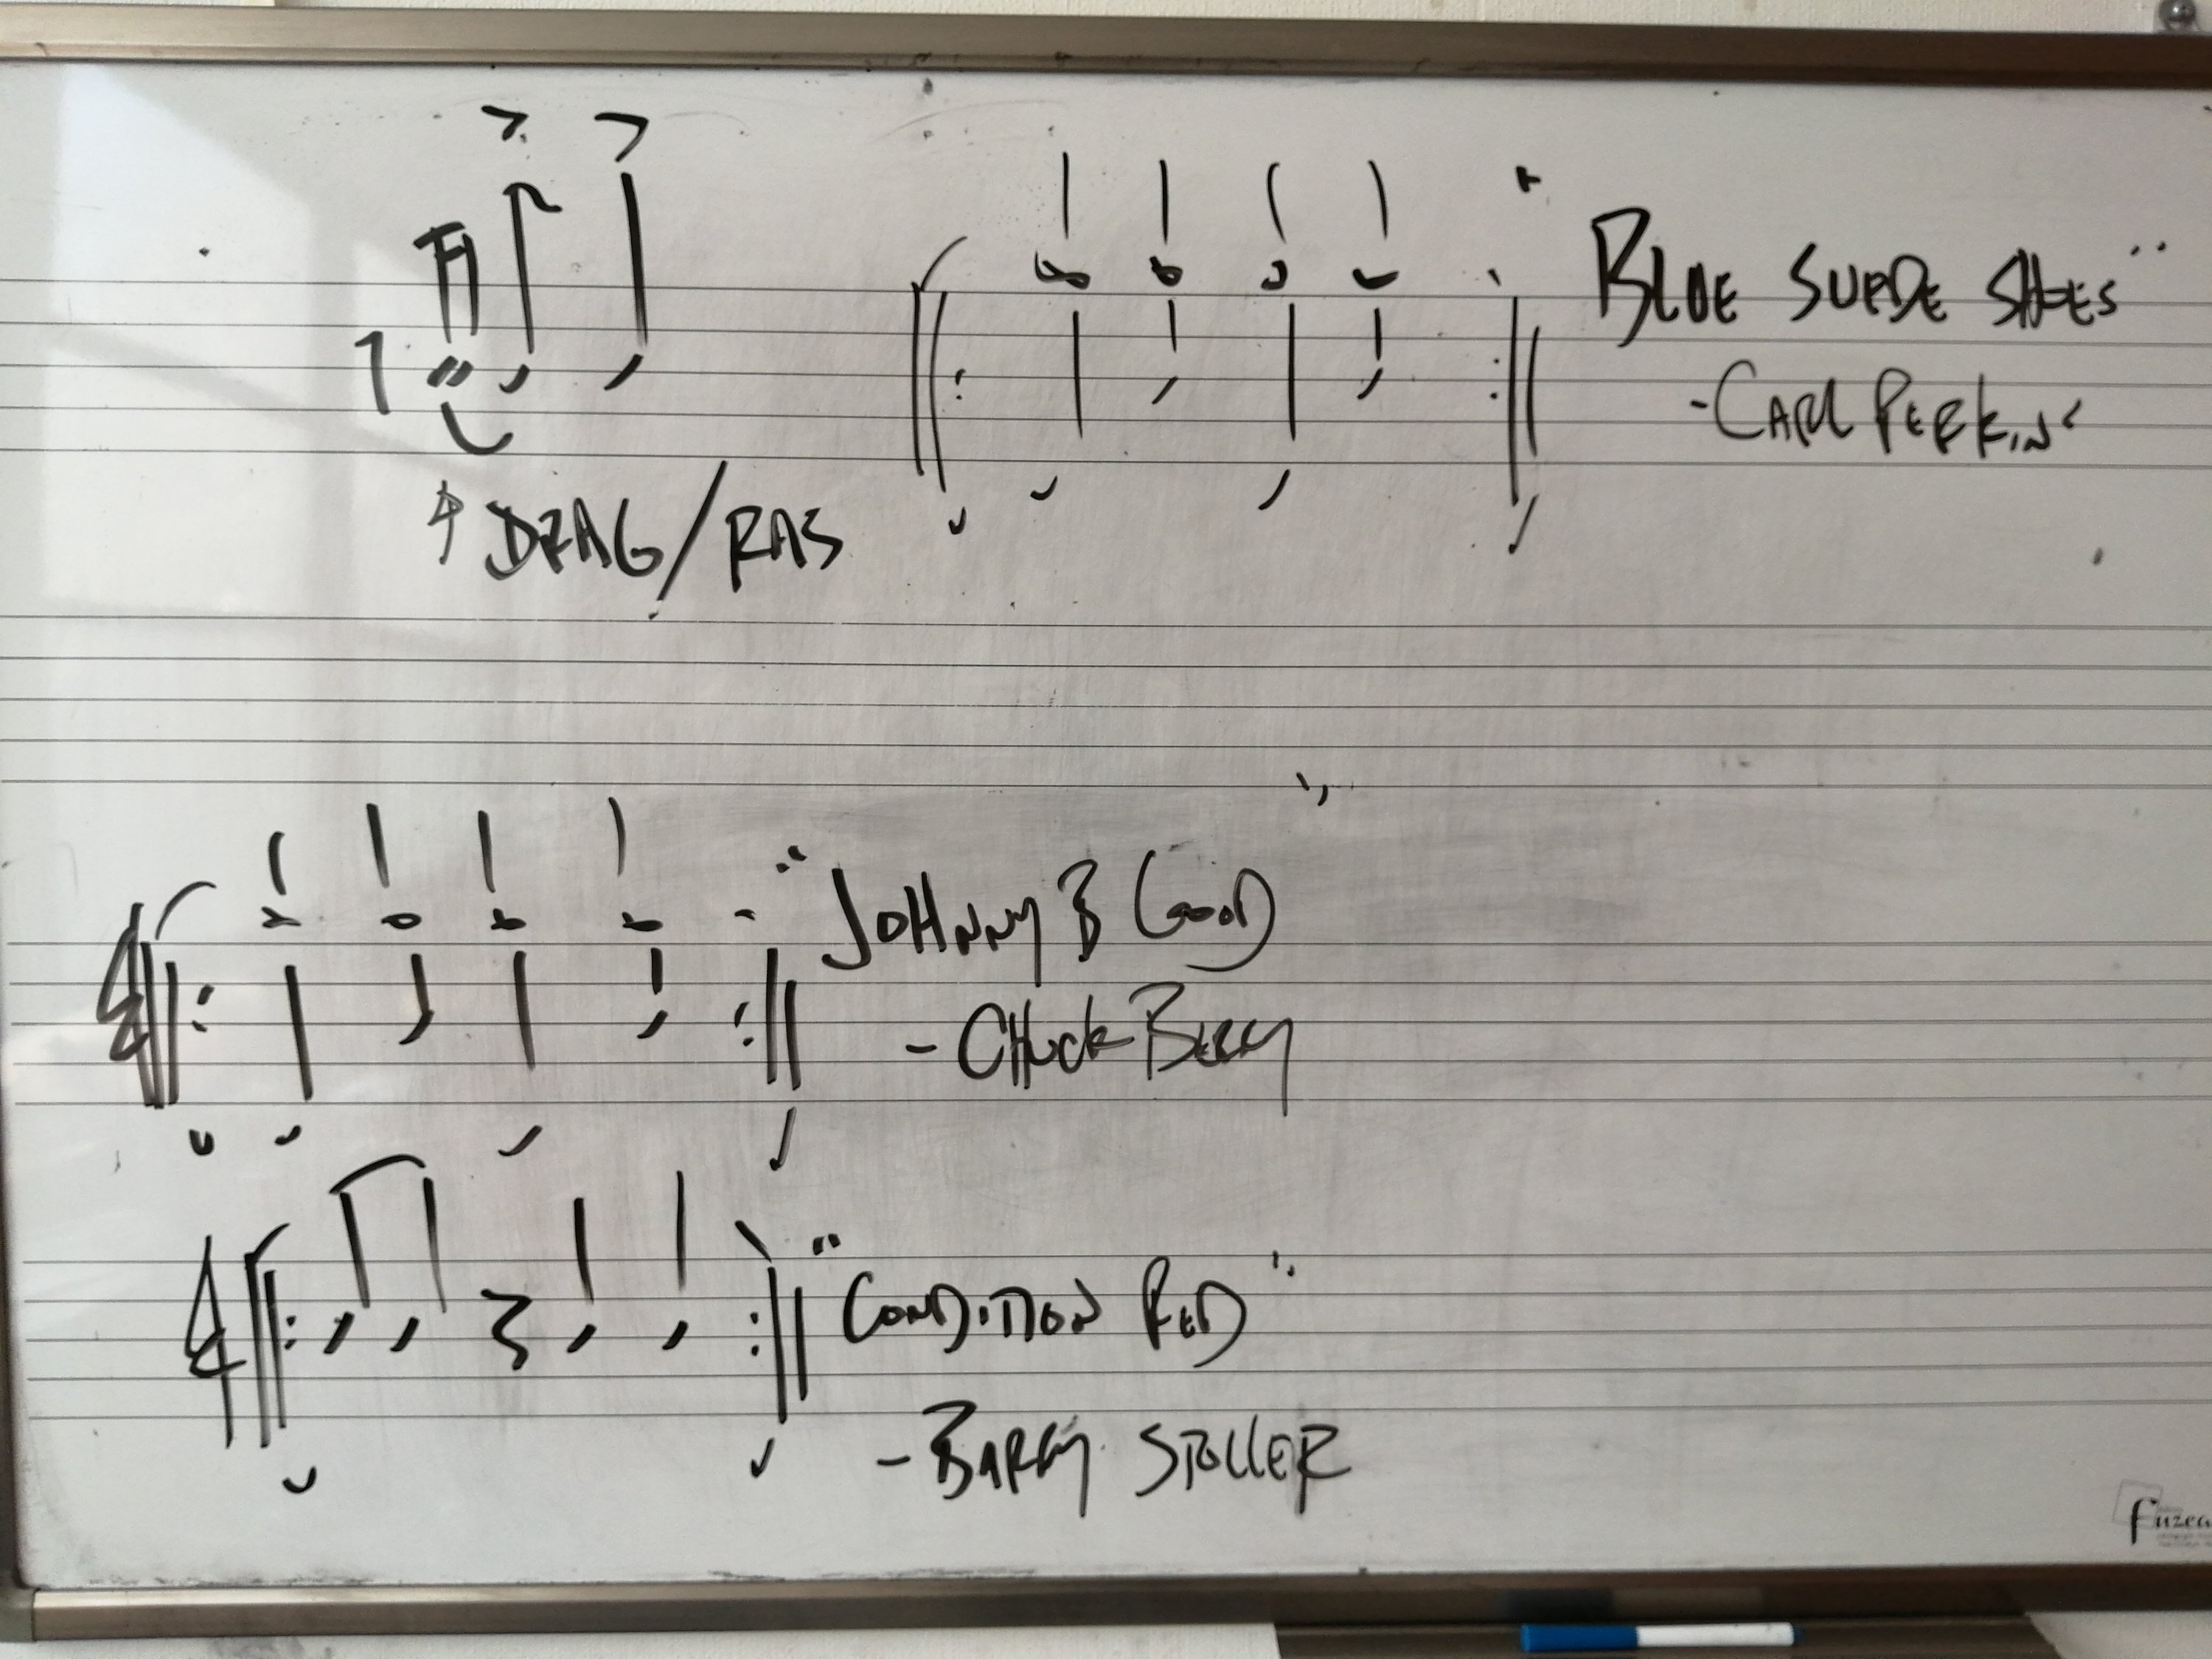 "BLUE SUEDE SHOES"
-CARL PERKINS
DRAG/RAS
"JOHNNY B GOOD"
-CHUCK BERRY
"CONDITION RED"
-BARRY STOLLER
fuzea